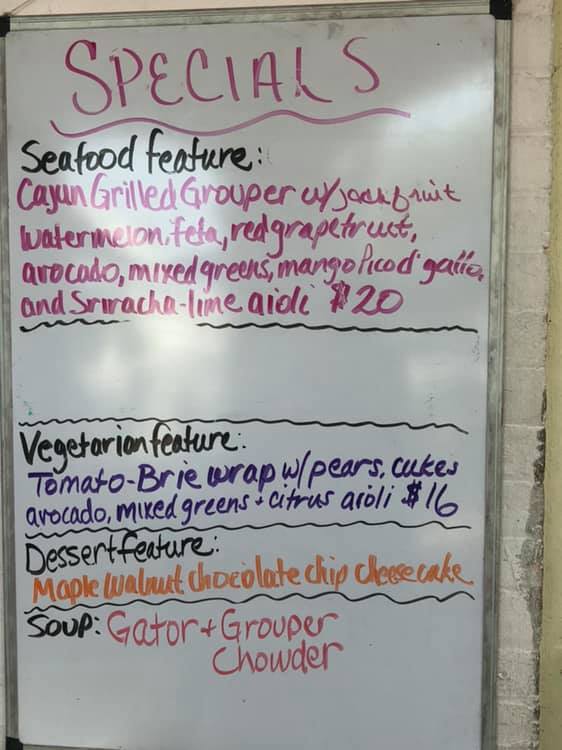 SPECIALS
Seafood feature:
Cajun Grilled Grouper w/ jackfruit
watermelon, feta, red grapefruit,
avocado, mixed greens, mango Pico d' gallo,
and Sriracha-lime aioli $20
Vegetarian feature:
Tomato-Brie wrap w/ pears, cukes
avocado, mixed greens + citrus aioli $16
Dessert feature:
Maple walnut chocolate chip cheesecake
Soup: Gator + Grouper
Chowder